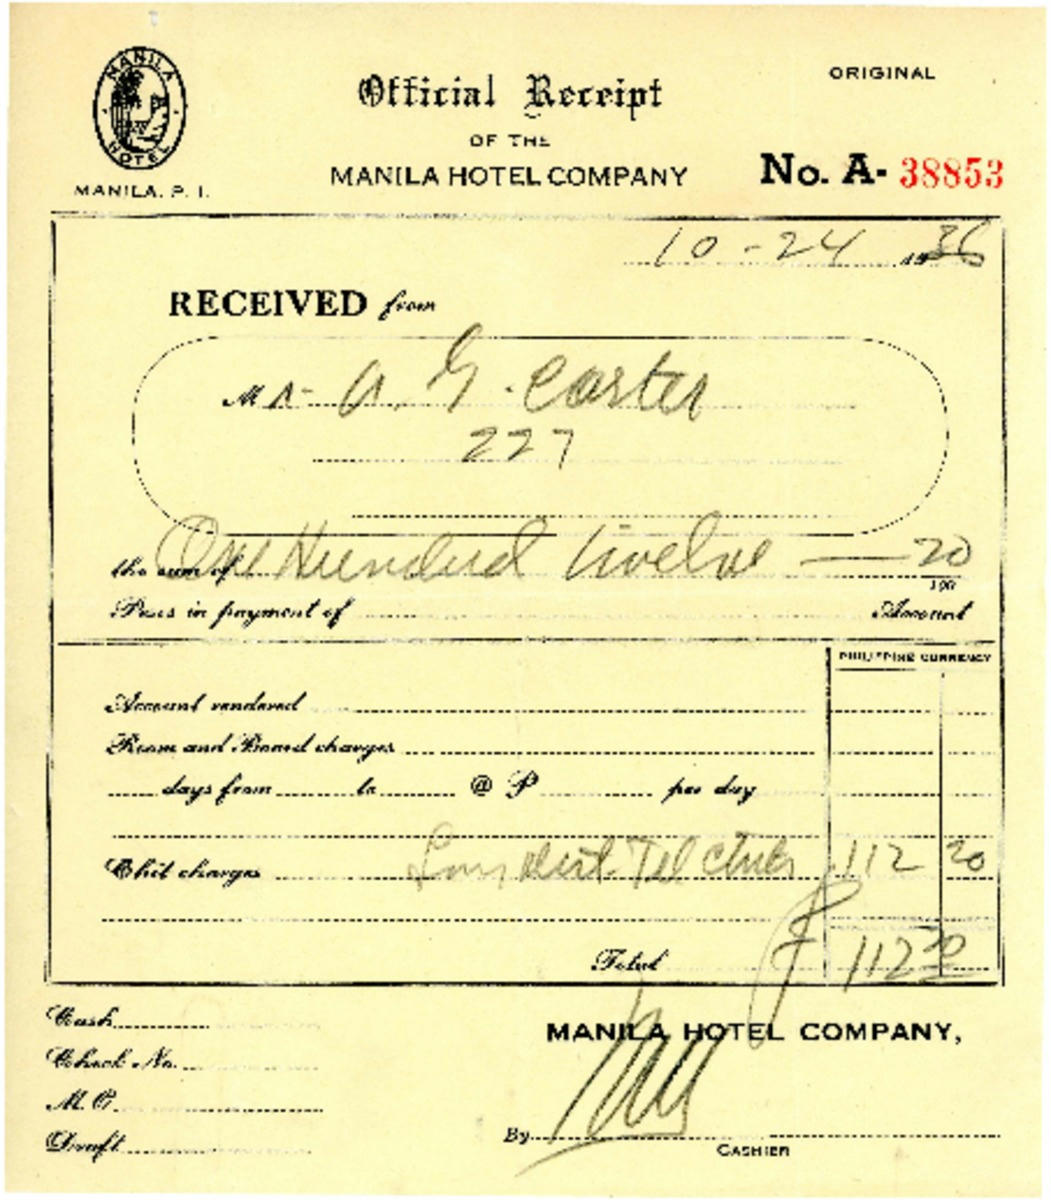 MANILA HOTEL
MANILA. P. I.
Official Receipt
OF THE
MANILA HOTEL COMPANY
ORIGINAL
No. A- 38853
10-24 1936
RECEIVED from
Mr- A. G. Carter
227
the sum of One Hundred twelve — 20/100
Pesos in payment of Account
PHILIPPINE CURRENCY
Account rendered
Room and Board charges
days from to @ P per day
Chit charges Long Dist. Tel 112 20
Total ₱ 112 20
Cash
Check No.
M. O.
Draft
MANILA HOTEL COMPANY,
By
CASHIER